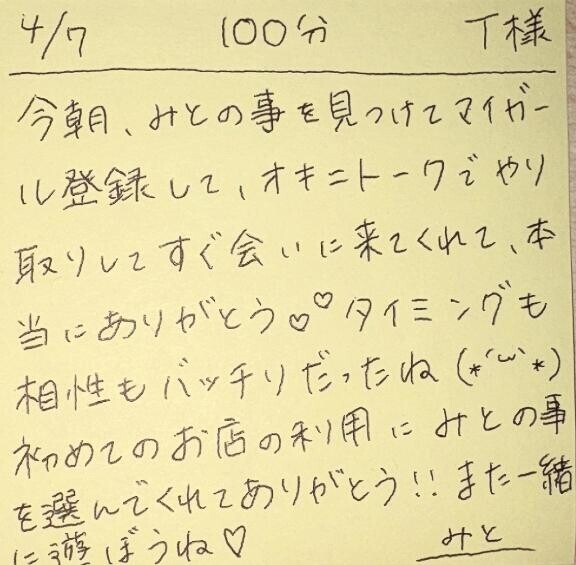 4/7 100分 T様
今朝、みとの事を見つけてマイガー
ル登録して、オキニトークでやり
取りしてすぐ会いに来てくれて、本
当にありがとう♡♡タイミングも
相性もバッチリだったね(*´ω`*)
初めてのお店の利用にみとの事
を選んでくれてありがとう!!また一緒
に遊ぼうね♡ みと